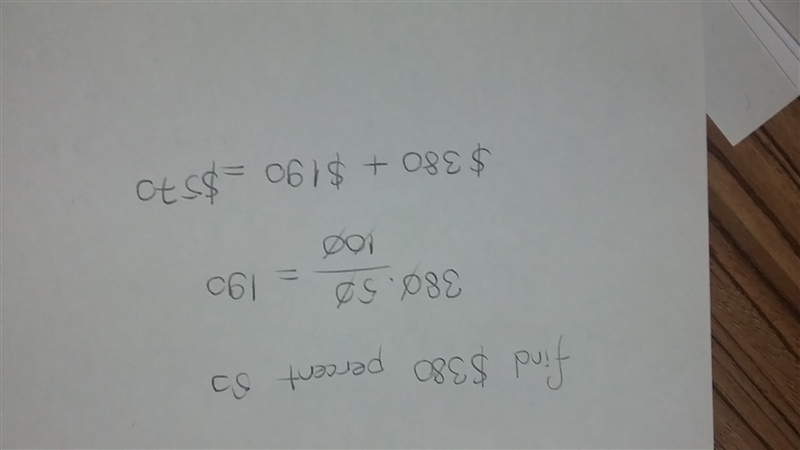 find $380 percent 50
380 . 50 / 100 = 190
$380 + $190 = $570